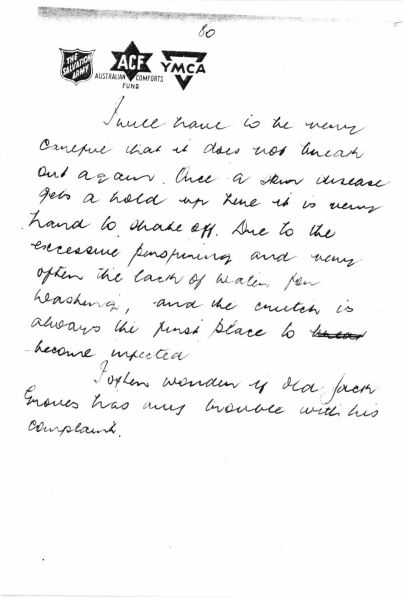 80
THE SALVATION ARMY
ACF
AUSTRALIAN COMFORTS FUND
YMCA
I will have to be very
careful that it does not break
out again. Once a skin disease
gets a hold up here it is very
hard to shake off. Due to the
excessive perspiring and very
often the lack of water for
washing, and the crutch is
always the first place to
become infected
I often wonder if old Jack
Groves has any trouble with his
complaint.